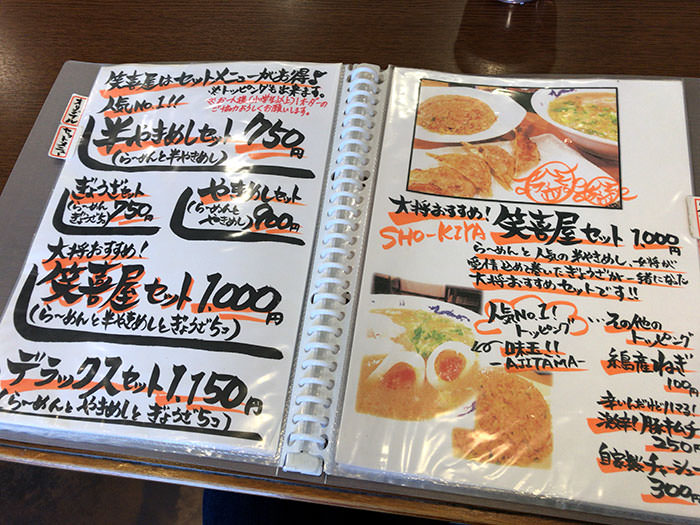 笑喜屋はセットメニューがお得!
※トッピングも出来ます。
※お一人様(小学生以上)1オーダーの
ご協力よろしくお願いします。
人気No.1!!
半やきめしセット 750円
(らーめんと半やきめし)
ぎょうざセット
(らーめんと
ぎょうざ5コ)
750円
やきめしセット
(らーめんと
やきめし)
900円
大将おすすめ!
笑喜屋セット 1,000円
(らーめんと半やきめしとぎょうざ5コ)
デラックスセット 1,150円
(らーめんとやきめしとぎょうざ5コ)
大将おすすめ!
SHO-KIYA
笑喜屋セット 1,000円
らーめんと人気の半やきめし、女将が
愛情込めて巻いたぎょうざが一緒になった
大将おすすめセットです!!
人気No.1!
トッピング
味玉!!
-AJITAMA-
...その他の
トッピング
100円
250円
300円